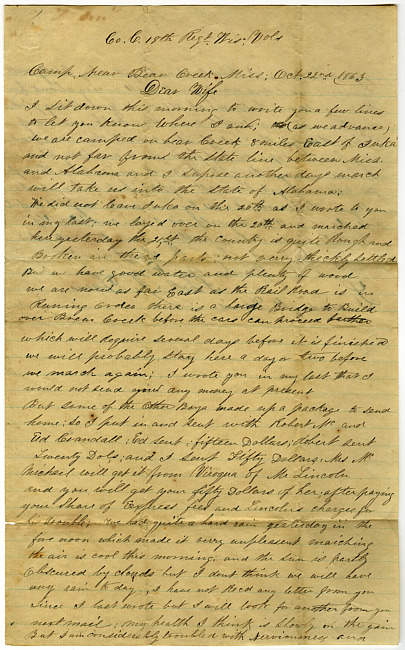 Co. C. 18th Regt. Wis. Vols
Camp Near Bear Creek Miss; Oct. 22nd 1863
Dear Wife
I sit down this morning to write you a few lines
to let you know where I am; as we advance;
we are camped on bear Creek 8 miles East of Iuka
and not far from the State line between Miss.
and Alabama and I supose another days march
will take us into the State of Alabama;
We did not leave Iuka on the 20th as I wrote to you
in my last; we layed over on the 20th and marched
here yesterday the 21st the country is quite Rough and
Broken in these parts; not very thickly settled
But we have good water and plenty of wood
we are now as far East as the Rail Road is in
Running Order there is a large Bridge to Build
over Bear Creek before the cars can proceed further
which will Require several days before it is finished
we will probably stay heer a day or two before
we march again; I wrote you in my last that I
would not send you any money at present
But some of the Other Boys made up a package to send
home; so I put in and sent with Robert Mc and
Ed Crandall; Ed sent fifteen Dollars; Robert sent
Twenty Dols; and I sent Fifty Dollars; Mrs Mc
Michael will get it from Viroqua of Mr Lincoln
and you will get your fifty Dollars of her, after paying
your share of Express fees and Lincolns charges for
his trouble; We had quite a hard rain yesterday in the
fore noon which made it very unpleasent marching
the air is cool this morning; and the sun is partly
obscured by clouds but I dont think we will have
any rain to day, I have not Recd any letter from you
since I last wrote but I will look for another from you
next mail; my health I think is slowly on the gain
But I am considerably troubled with Nerviousness and